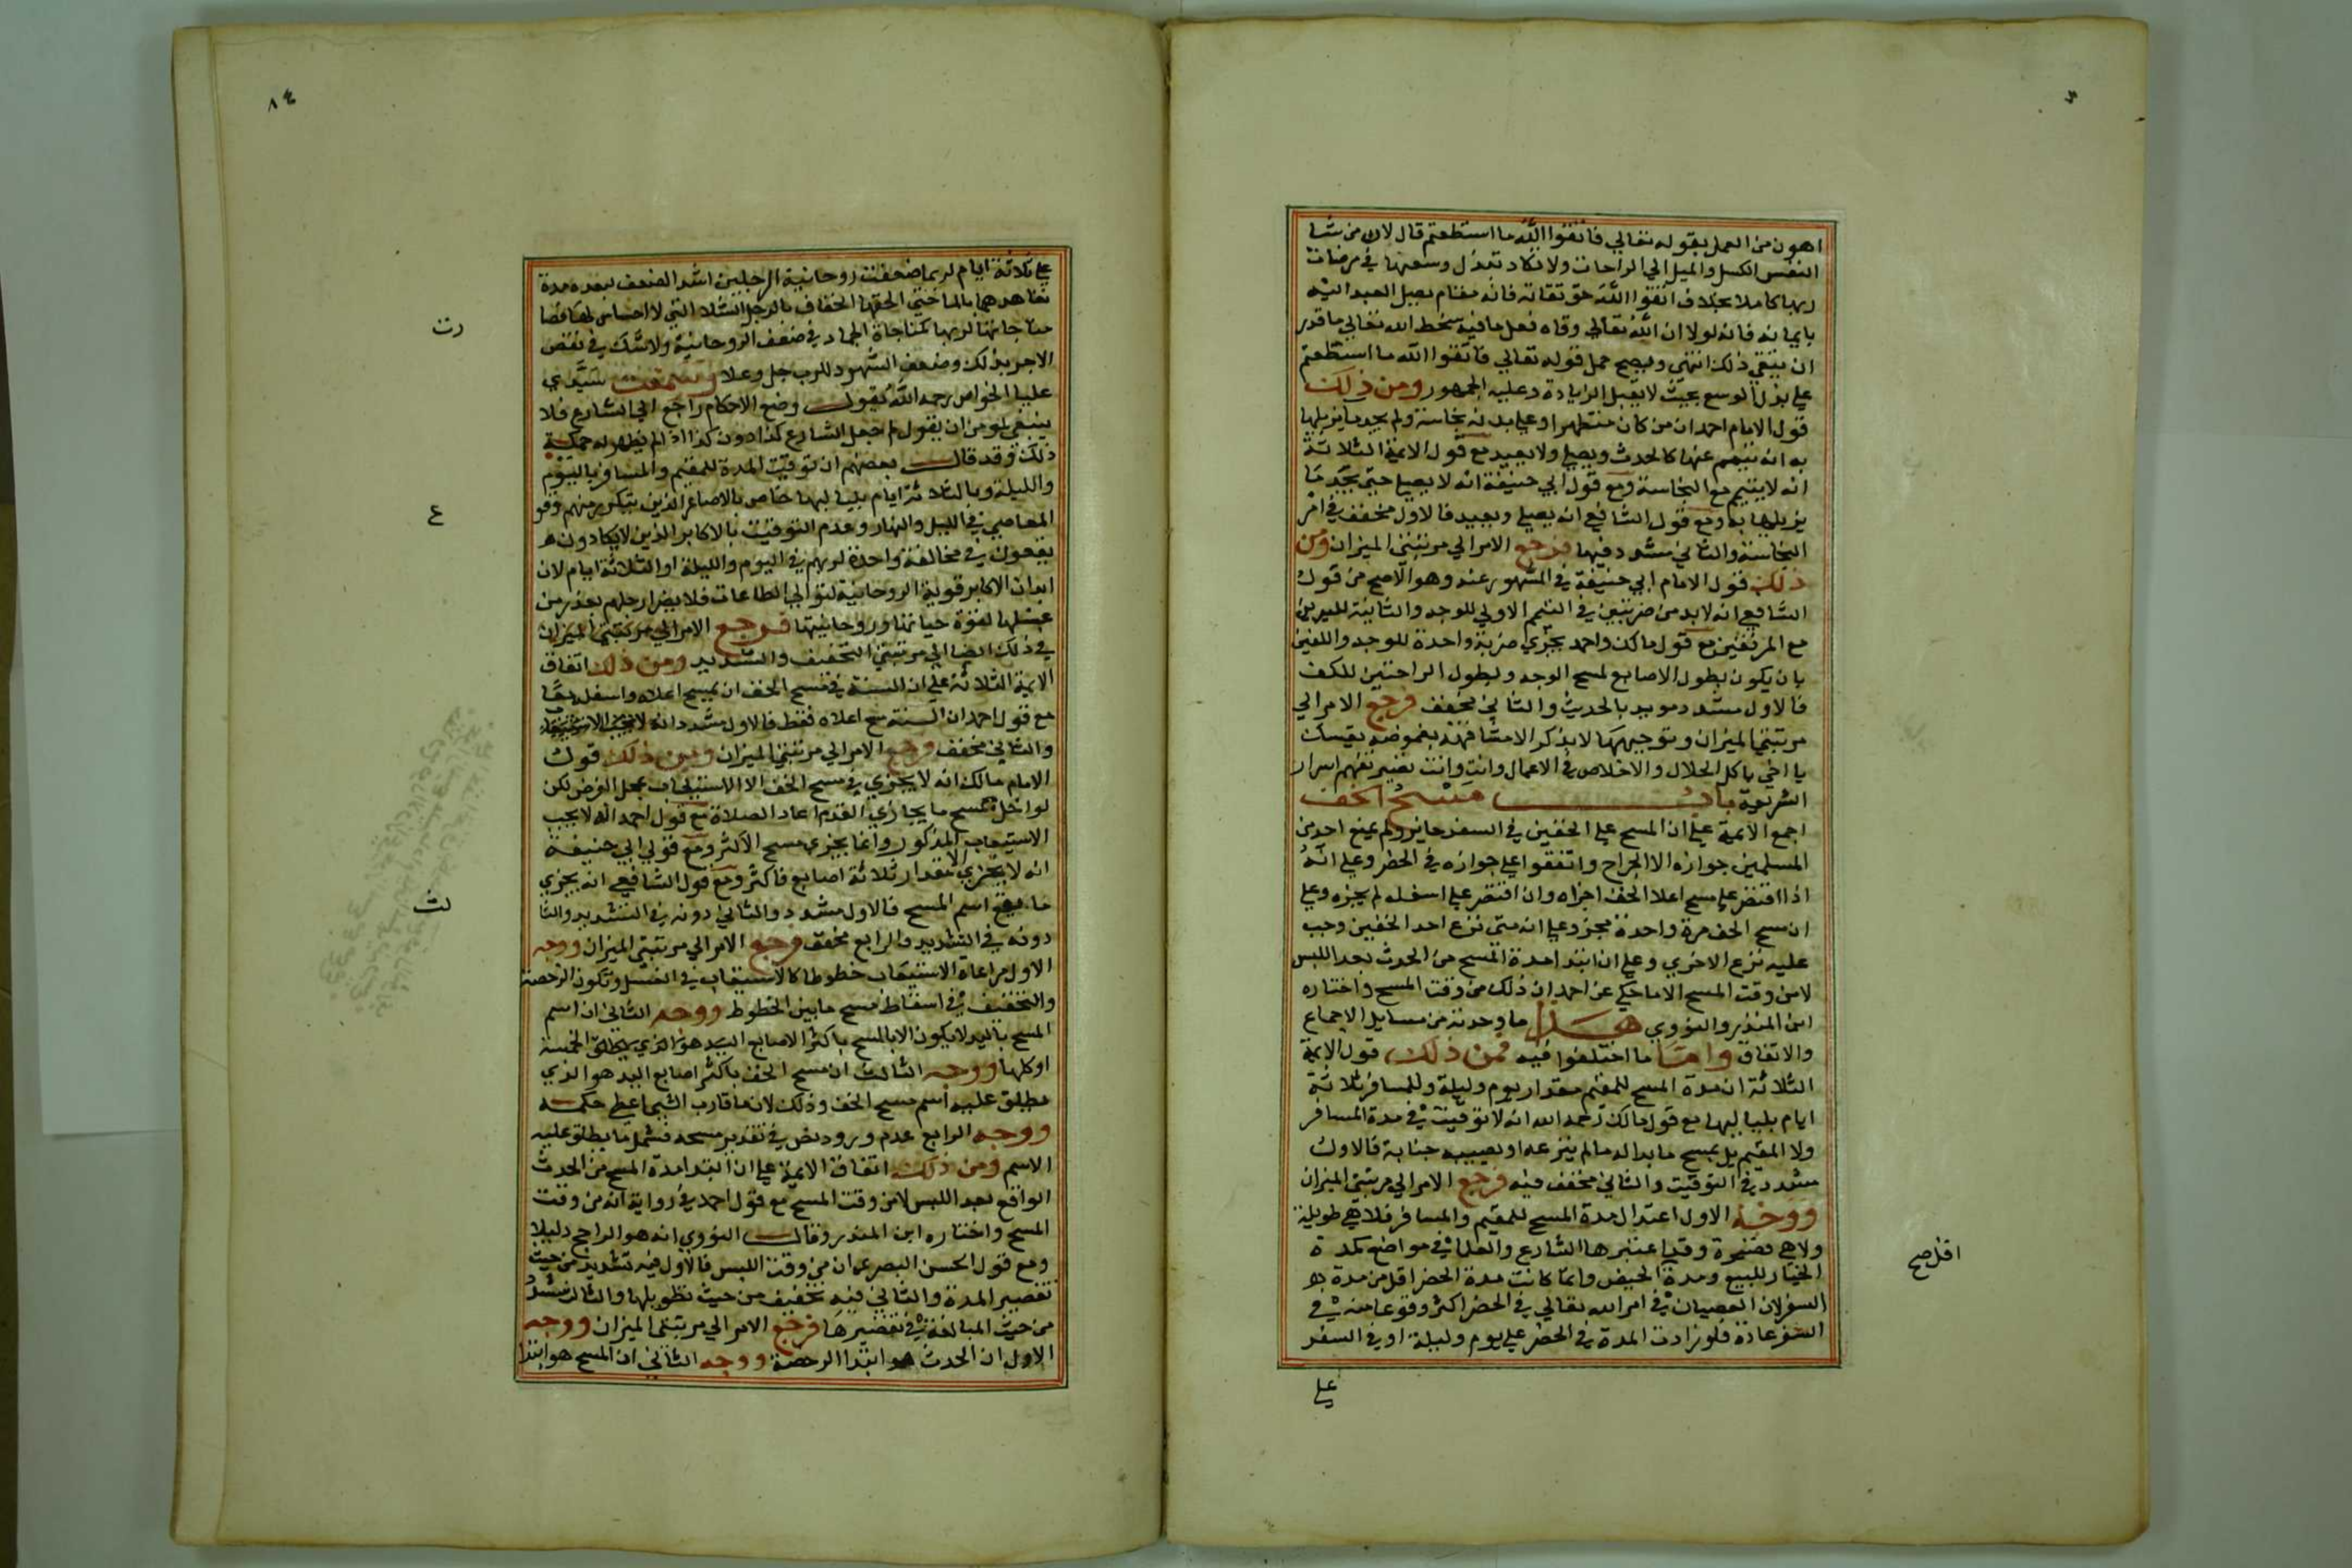 اهون من العمل بقوله تعالى فاتقوا الله ما استطعتم قال لان من شا
النفس الكسل والميل الي الراحات ولا تكاد تبذل وسعها في مرضات
ربها كاملا بخلاف اتقوا الله حق تقاته فانه مقام يصل العبد اليه
بايمانه فانه لولا ان الله تعالى وقاه فعل ما فيه سخط الله تعالي ما قدر
ان يتقي ذلك انتهي ويصح حمل قوله تعالى فاتقوا الله ما استطعتم
علي بذل الوسع بحيث لا يقبل الزيادة وعليه الجمهور ومن ذلك
قول الامام احمد ان من كان متطهرا وعلي بدنه نجاسة ولم يجد ما يزيلها
به انه يتيمم عنها كالحدث ويصلي ولا يعيد مع قول الايمة الثلاثة
انه لا يتيمم مع النجاسة ومع قول ابي حنيفة انه لا يصلي حتي يجد ما
يزيلها به ومع قول الشافعي انه يصلي ويعيد فالاول مخفف في امر
النجاسة والثاني مشدد فيها فرجع الامر الي مرتبتي الميزان ومن
ذلك قول الامام ابي حنيفة في المشهور عنه وهو الاصح من قول
الشافعي انه لابد من ضربتين في التيمم الاولي للوجه والثانية لليدين
مع المرفقين مع قول مالك واحمد يجزي ضربة واحدة للوجه والكفين
بان يكون بطول الاصابع لمسح الوجه وبطول الراحتين للكف
فالاول مشدد مويد بالحديث والثاني مخفف فرجع الامر الي
مرتبتي الميزان وتوجيههما لا يذكر الا مشافهة لغموضه
يا اخي باكل الحلال والاخلاص في الاعمال وانت تصير تفهم اسرار
الشريعة باب مسح الخف
اجمع الايمة علي ان المسح علي الخفين في السفر جايز ولم يمنع احد من
المسلمين جوازه الا الخوارج واتفقوا علي جوازه في الحضر وعلي انه
اذا اقتصر علي مسح اعلا الخف اجزاه وان اقتصر علي اسفله لم يجزه وعلي
ان مسح الخف مرة واحدة مجز وعلي انه متي نزع احد الخفين وجب
عليه نزع الاخري وعلي ان ابتدا مدة المسح من الحدث بعد اللبس
لا من وقت المسح الا ما حكي عن احمد ان ذلك من وقت المسح واختاره
ابن المنذر والنووي هذا ما وجدته من مسايل الاجماع
والاتفاق واما ما اختلفوا فيه فمن ذلك قول الايمة
الثلاثة ان مدة المسح للمقيم مقدار يوم وليلة وللمسافر ثلاثة
ايام بلياليها مع قول مالك رحمه الله انه لا توقيت في مدة المسافر
ولا المقيم بل يمسح ما بدا له ما لم ينزعه او يصيبه جنابة فالاول
مشدد في التوقيت والثاني مخفف فيه فرجع الامر الي مرتبتي الميزان
ووجه الاول اعتدال مدة المسح للمقيم والمسافر فلا هي طويلة
ولا هي قصيرة وقد اعتبرها الشارع والعلما في مواضع كمدة
الخيار للبيع ومدة الحيض وانما كانت مدة الحضر اقل من مدة
السفر لان العصيان في امر الله تعالي في الحضر اكثر وقوعا منه في
السفر عادة فلو زادت المدة في الحضر علي يوم وليلة او في السفر
علي
اقل صح
٨٤
علي ثلاثة ايام لربما ضعفت روحانية الرجلين اشد الضعف لبعد مدة
تعاهدهما بالما حتي الحقها الخفاف بالرجل الشلا التي لا احساس لها
مناجاتها لربها كمناجاة الجماد في ضعف الروحانية ولا شك في نقص
الاجر بذلك وضعف الشهود للرب جل وعلا وسمعت سيدي
عليا الخواص رحمه الله يقول وضع الاحكام راجع الي الشارع فلا
ينبغي لمومن ان يقول لم جعل الشارع كذا دون كذا اذا لم يظهر له حكمة
ذلك وقد قال بعضهم ان توقيت المدة للمقيم والمسافر باليوم
والليلة وبالثلاثة ايام بلياليها خاص بالاصاغر الذين يتكرر منهم وقو
المعاصي في الليل والنهار وعدم التوقيت بالاكابر الذين لا يكادون
يقعون في مخالفة واحدة لربهم في اليوم والليلة او الثلاثة ايام لان
ابدان الاكابر قوية الروحانية لتوالي الطاعات فلا يضر ارجلهم بعد زمن
غسلها لقوة حياتها وروحانيتها فرجع الامر الي مرتبتي الميزان
في ذلك ايضا الي مرتبتي التخفيف والتشديد ومن ذلك اتفاق
الايمة الثلاثة علي ان السنة في مسح الخف ان يمسح اعلاه واسفله معا
مع قول احمد ان السنة مسح اعلاه فقط فالاول مشدد
والثاني مخفف فرجع الامر الي مرتبتي الميزان ومن ذلك قول
الامام مالك انه لا يجزي في مسح الخف الا الاستيعاب لمحل الفرض لكن
لو اخل بمسح ما يحاذي القدم اعاد الصلاة مع قول احمد انه لا يجب
الاستيعاب المذكور وانما يجزي مسح الاكثر ومع قول ابي حنيفة
انه لا يجزي الا مقدار ثلاثة اصابع فاكثر ومع قول الشافعي انه يجزي
ما يقع اسم المسح فالاول مشدد والثاني دونه في التشديد والثا
دونه في التشديد والرابع مخفف فرجع الامر الي مرتبتي الميزان ووجه
الاول مراعاة الاستيعاب خطوطا كالاستيعاب في الغسل وتكون الرخصة
والتخفيف في اسقاط مسح ما بين الخطوط ووجه الثاني ان اسم
المسح باليد لا يكون الا بالمسح باكثر الاصابع اليد هو الذي الخمسة
او كلها ووجه الثالث ان مسح الخف باكثر اصابع اليد هو الذي
يطلق عليه اسم مسح الخف وذلك لان ما قارب الشي اعطي حكمه
ووجه الرابع عدم ورود نص في تقدير مسحه فشمل ما يطلق عليه
الاسم ومن ذلك اتفاق الايمة علي ان ابتدا مدة المسح من الحدث
الواقع بعد اللبس لا من وقت المسح مع قول احمد في رواية انه من وقت
المسح واختاره ابن المنذر وقال النووي انه هو الراجح دليلا
ومع قول الحسن البصري ان من وقت اللبس فالاول فيه تشديد من حيث
تقصير المدة والثاني فيه تخفيف من حيث تطويلها والثالث مشدد
من حيث المبالغة في تقصيرها فرجع الامر الي مرتبتي الميزان ووجه
الاول ان الحدث هو ابتدا الرخصة ووجه الثاني ان المسح هو ابتدا
ع